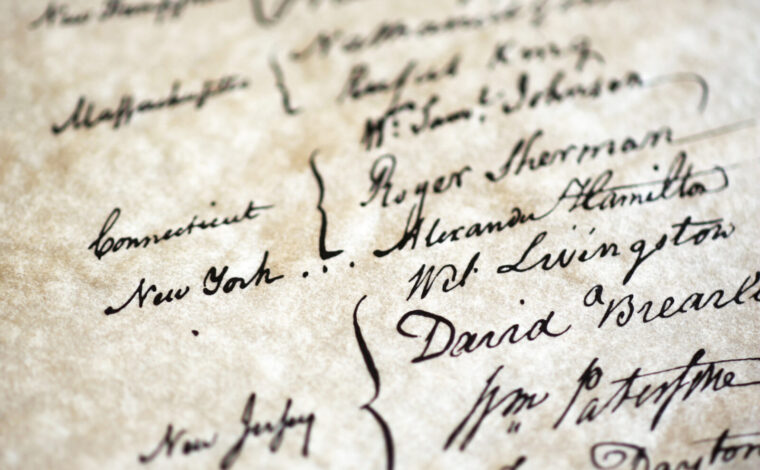 New Hampshire
Massachusetts { Nathaniel
Rufus King
Wm. Saml. Johnson
Connecticut { Roger Sherman
New York . . . Alexander Hamilton
Wil. Livingston
David Brearl
New Jersey { Wm Paterson
Dayton